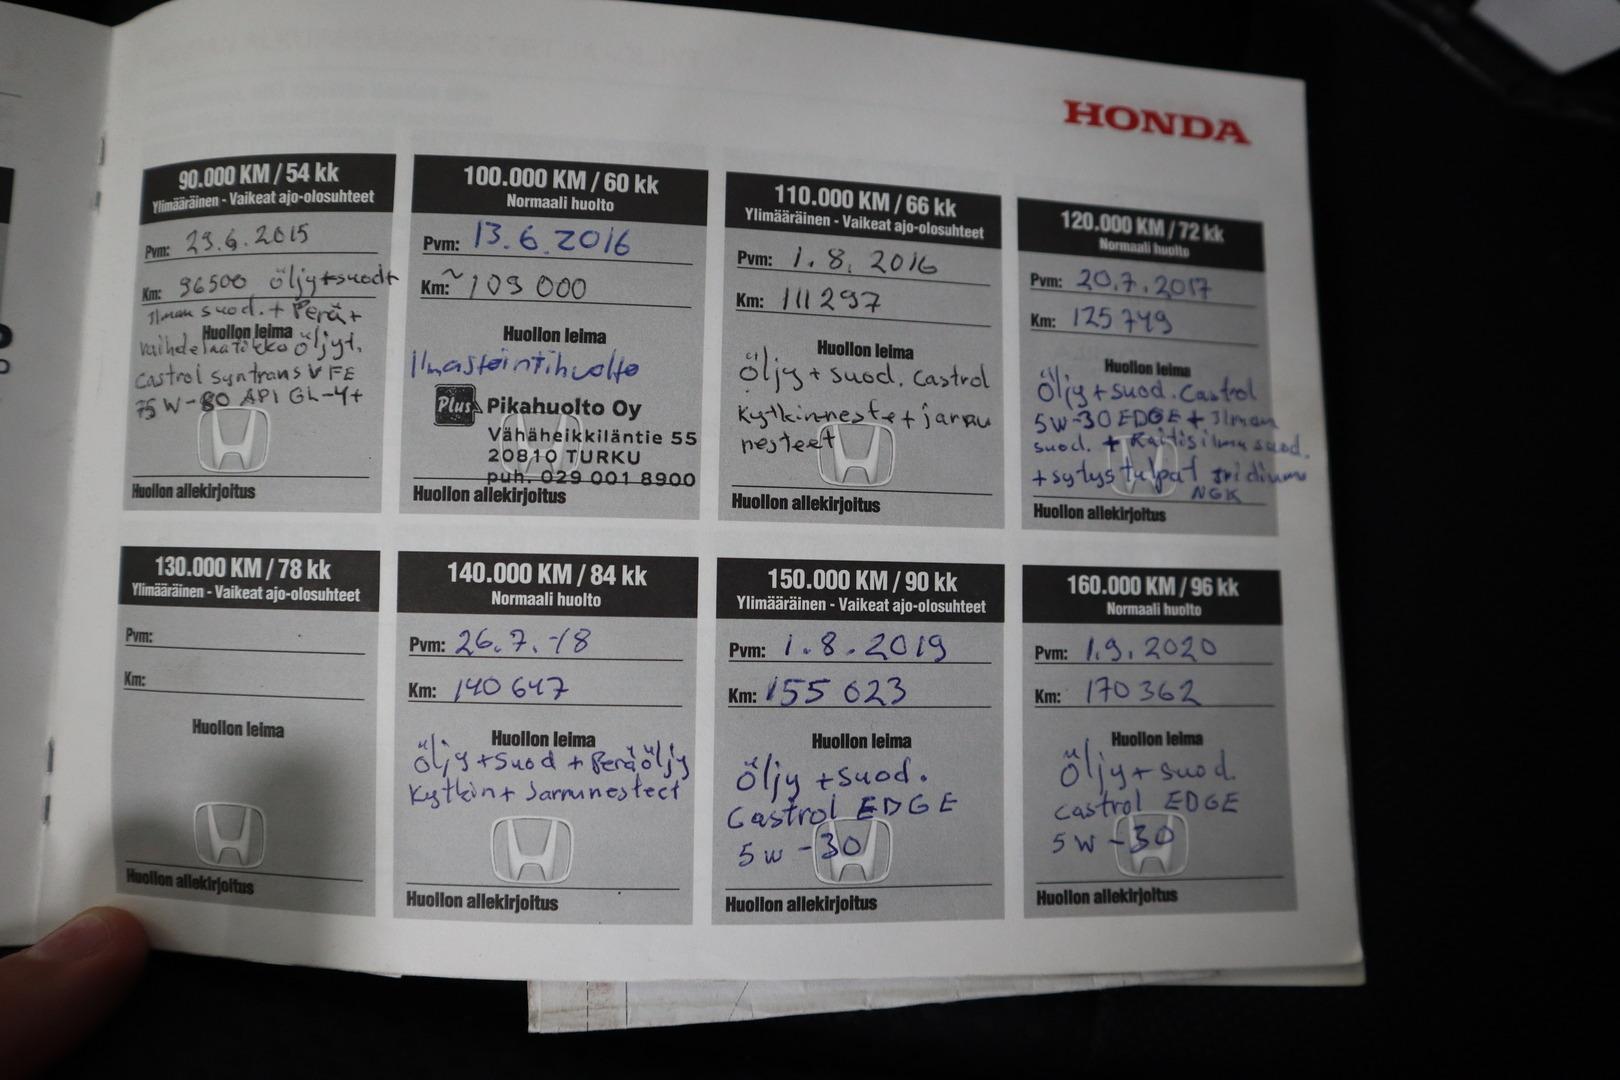 HONDA
90.000 KM / 54 kk
Ylimääräinen - Vaikeat ajo-olosuhteet
Pvm: 29.6.2015
Km: 96500 öljy+suodt
Ilman suod. + Perä+
Huollon leima
vaihdelaatikko öljyt.
Castrol Syntrans V FE
75W-80 API GL-4+
Huollon allekirjoitus
100.000 KM / 60 kk
Normaali huolto
Pvm: 13.6.2016
Km: ~109 000
Huollon leima
Ilmastointihuolto
Plus Pikahuolto Oy
Vähäheikkiläntie 55
20810 TURKU
puh. 029 001 8900
Huollon allekirjoitus
110.000 KM / 66 kk
Ylimääräinen - Vaikeat ajo-olosuhteet
Pvm: 1.8.2016
Km: 111297
Huollon leima
Öljy + suod. Castrol
Kytkinneste + jarru
nesteet
Huollon allekirjoitus
120.000 KM / 72 kk
Normaali huolto
Pvm: 20.7.2017
Km: 125749
Huollon leima
Öljy + suod. Castrol
5W-30 EDGE + Ilman
suod. + Raitisilma suod.
+ sytystulpat Iridium
NGK
Huollon allekirjoitus
130.000 KM / 78 kk
Ylimääräinen - Vaikeat ajo-olosuhteet
Pvm:
Km:
Huollon leima
Huollon allekirjoitus
140.000 KM / 84 kk
Normaali huolto
Pvm: 26.7.-18
Km: 140 647
Huollon leima
Öljy + Suod + Peräöljy
Kytkin + Jarrunesteet
Huollon allekirjoitus
150.000 KM / 90 kk
Ylimääräinen - Vaikeat ajo-olosuhteet
Pvm: 1.8.2019
Km: 155 623
Huollon leima
Öljy + suod.
Castrol EDGE
5W-30
Huollon allekirjoitus
160.000 KM / 96 kk
Normaali huolto
Pvm: 1.9.2020
Km: 170 362
Huollon leima
Öljy + suod.
Castrol EDGE
5W-30
Huollon allekirjoitus